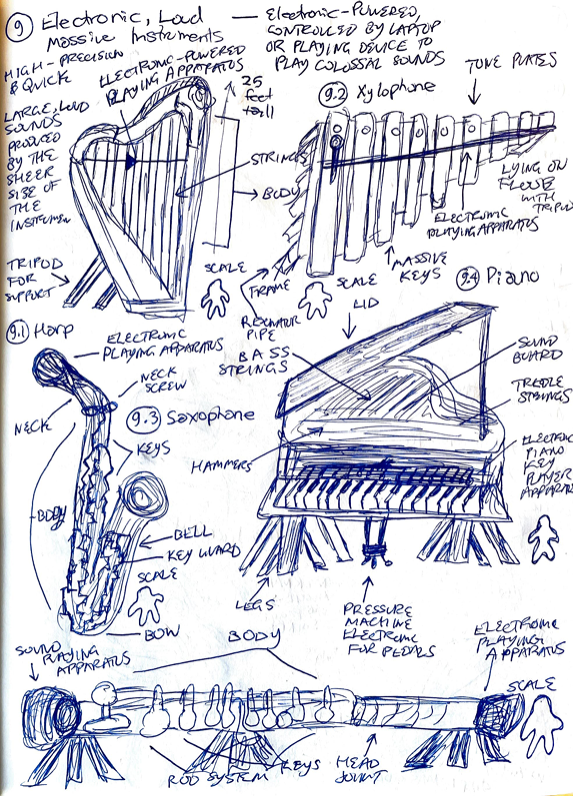 9 Electronic, Loud
Massive Instruments
— Electronic-Powered,
CONTROLLED BY LAPTOP
OR PLAYING DEVICE TO
PLAY COLOSSAL SOUNDS
HIGH-PRECISION
& QUICK
ELECTRONIC-POWERED
PLAYING APPARATUS
LARGE, LOUD
SOUNDS
PRODUCED
BY THE
SHEER
SIZE OF
THE
INSTRUMEN
25
feet
tall
STRINGS
BODY
TRIPOD
FOR
SUPPORT
SCALE
9.1 Harp
9.2 Xylophone
TONE PLATES
LYING ON
WITH TRIPOD
ELECTRONIC
PLAYING APPARATUS
MASSIVE
KEYS
FRAME
RESONATOR
PIPE
SCALE
9.3 Saxophone
ELECTRONIC
PLAYING APPARATUS
NECK
SCREW
NECK
KEYS
BODY
BELL
KEY GUARD
SCALE
BOW
9.4 Piano
LID
BASS
STRINGS
SOUND
BOARD
TREBLE
STRINGS
HAMMERS
ELECTRONIC
PIANO
KEY
PLAYER
APPARAT
LEGS
PRESSURE
MACHINE
ELECTRONIC
FOR PEDALS
SOUND
PLAYING
APPARATUS
BODY
ELECTRONIC
PLAYING
APPARATUS
SCALE
ROD SYSTEM
KEYS
HEAD
JOINT